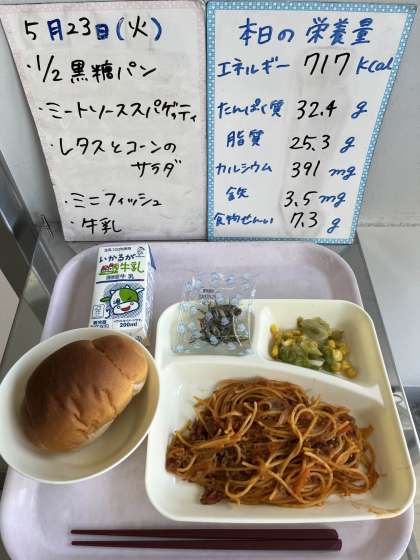 5月23日(火)
・1/2 黒糖パン
・ミートソーススパゲッティ
・レタスとコーンの
サラダ
・ミニフィッシュ
・牛乳
本日の栄養量
エネルギー 717 kcal
たんぱく質 32.4 g
脂質 25.3 g
カルシウム 391 mg
鉄 3.5 mg
食物せんい 7.3 g
いかるが
牛乳
200ml